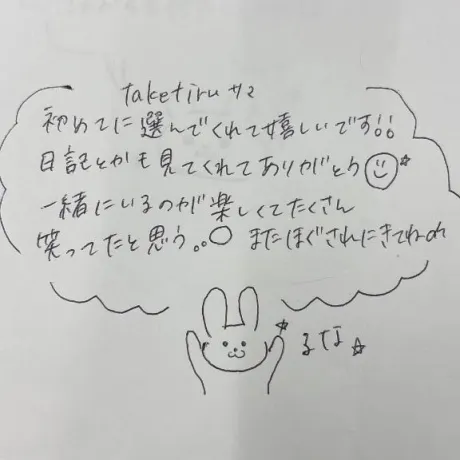 taketiruサマ
初めてに選んでくれて嬉しいです!!
日記とかも見てくれてありがとう
一緒にいるのが楽しくてたくさん
笑ってたと思う。。またほぐされにきてね
るな